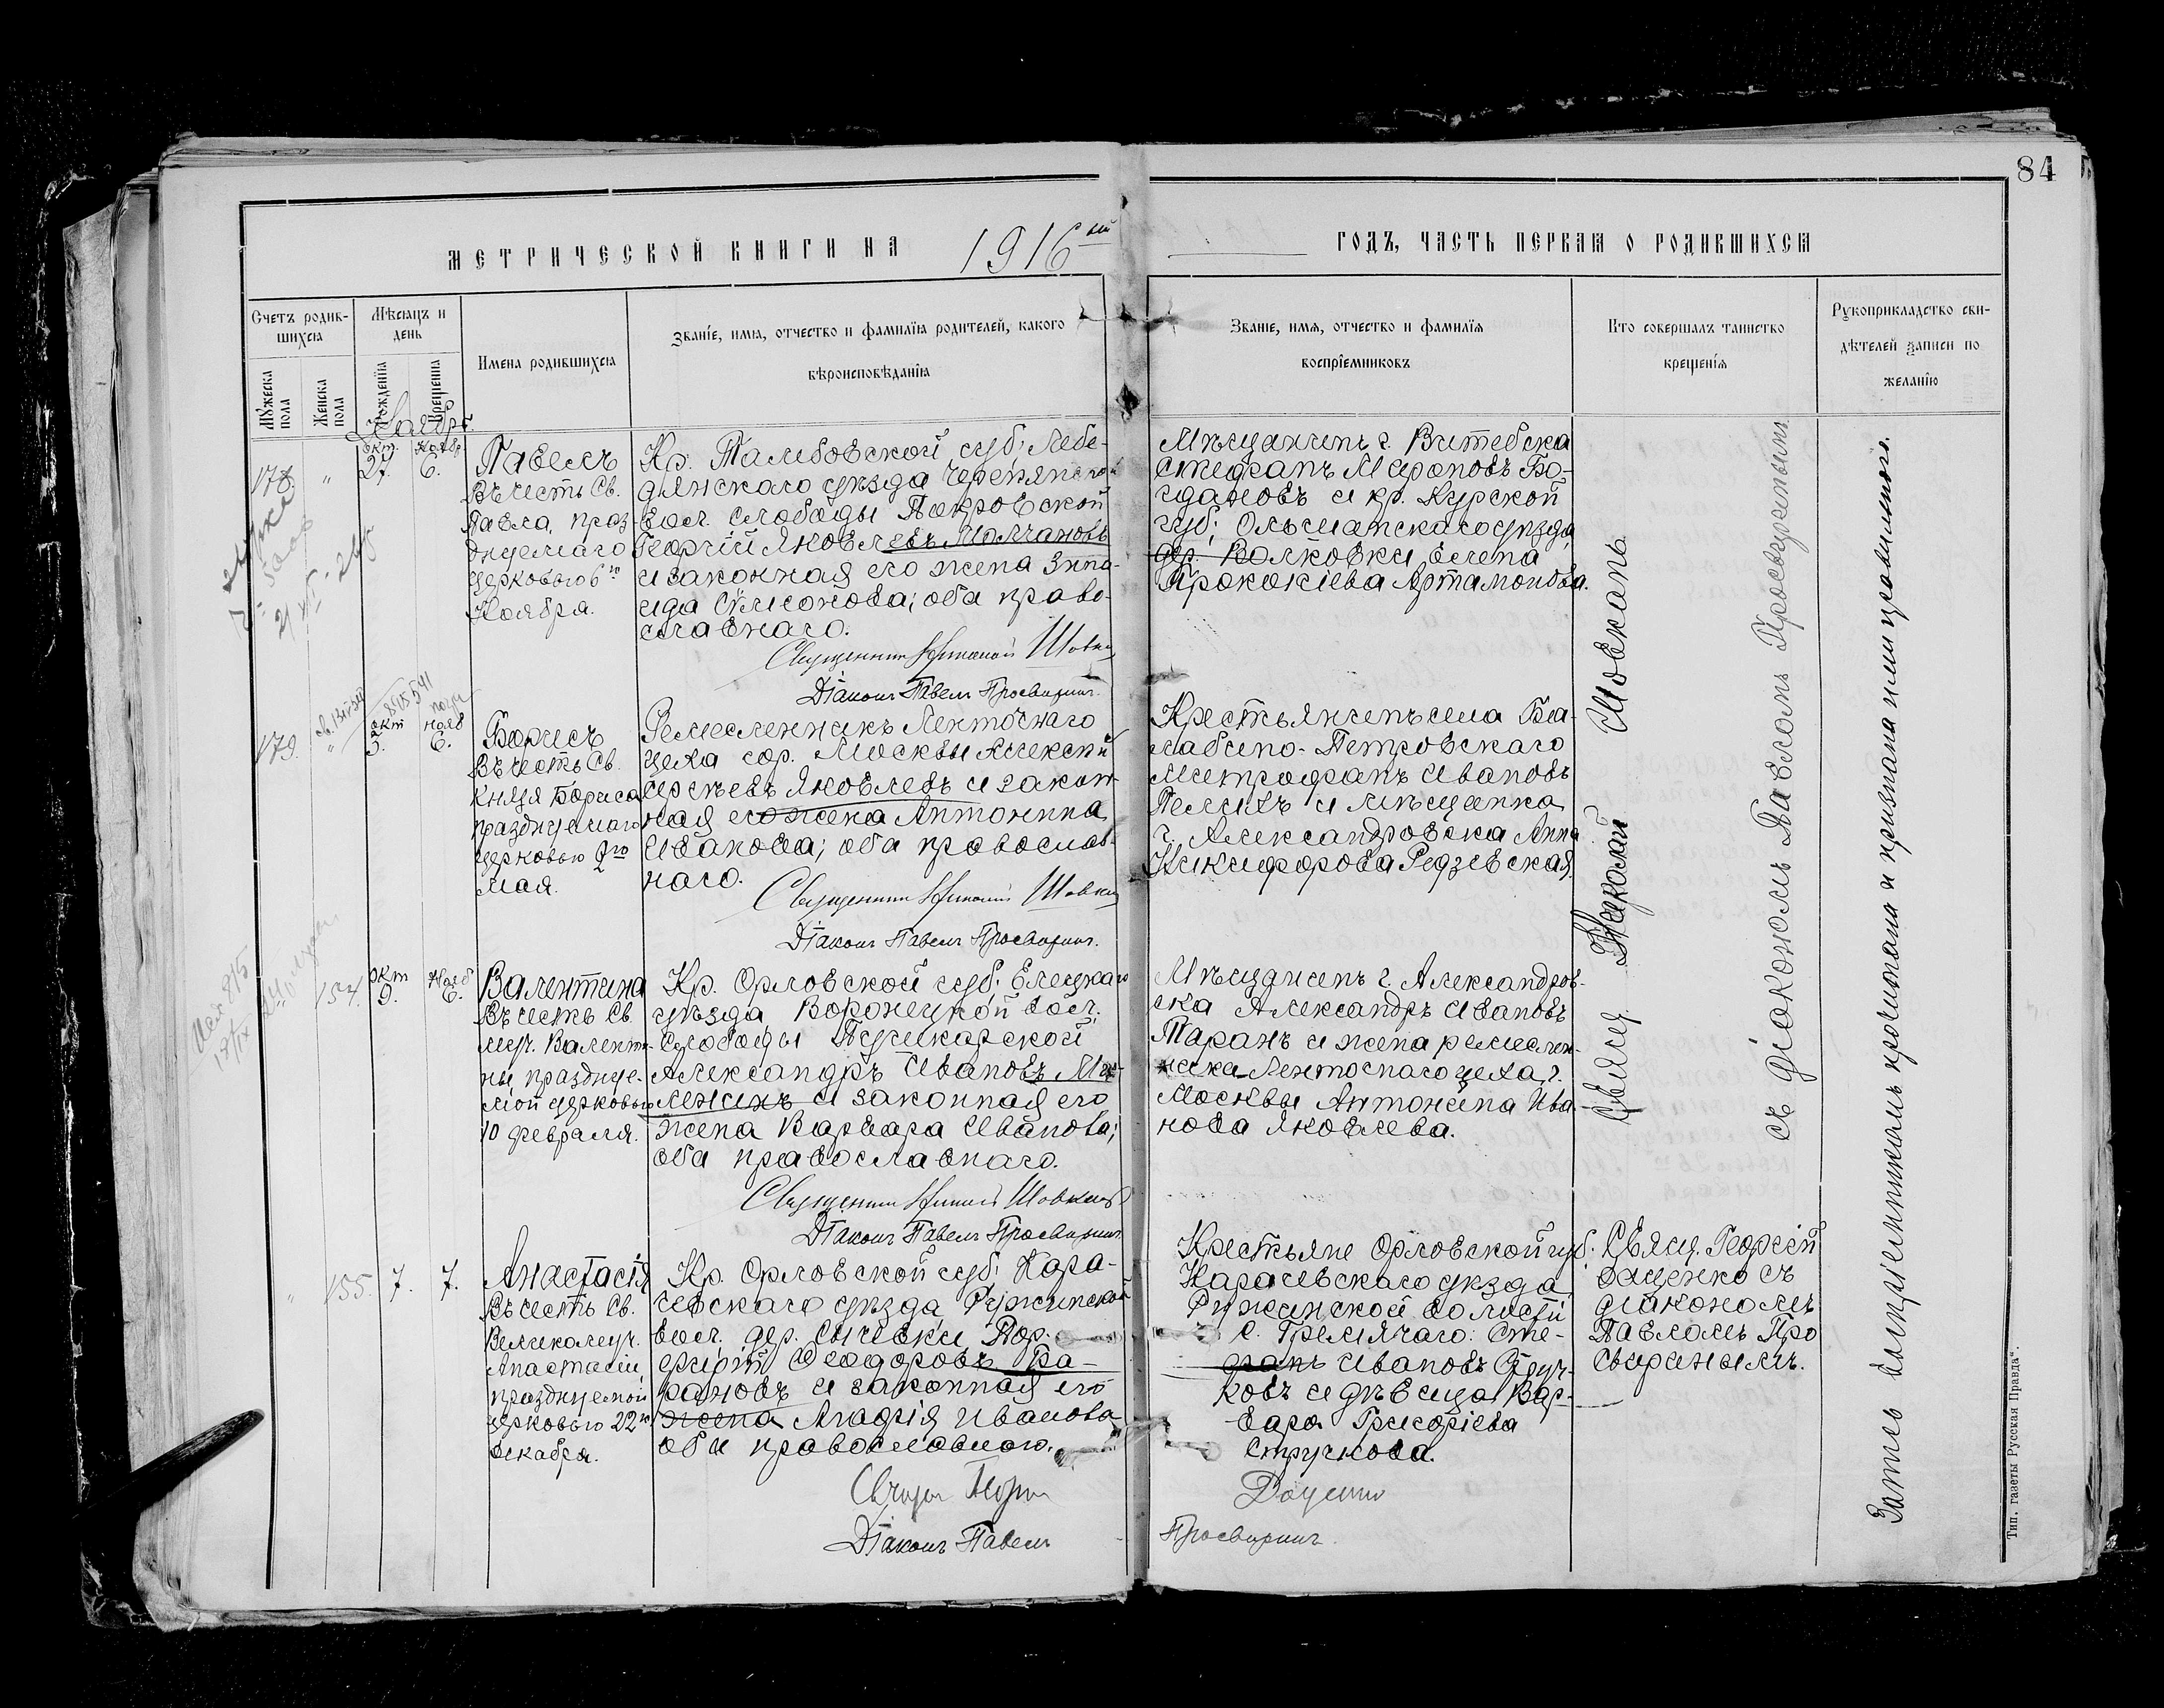 84
МЕТРИЧЕСКОЙ КНИГИ НА 1916ый
ГОДЪ, ЧАСТЬ ПЕРВАЯ О РОДИВШИХСЯ
Счетъ родившихся
Мужеска пола
Женска пола
Мѣсяцъ и день
Рожденія
Крещенія
Имена родившихся
Званіе, имя, отчество и фамилія родителей, какого
вѣроисповѣданія
Званіе, имя, отчество и фамилія
воспріемниковъ
Кто совершалъ таинство
крещенія
Рукоприкладство сви-
дѣтелей записи по
желанію
Ноябрь.
178 " окт. 27. Ноябр 6.
Павелъ
Въ честь Св.
Павла, праз-
днуемаго
церковью 6го
Ноября.
Кр. Тамбовской губ. Лебе-
дянскаго уѣзда
вол. слободы Покровской
Георгій Яковлевъ Молчановъ
и законная его жена Зина-
ида Симонова; оба право-
славнаго.
Священникъ Николай Шовкан
Діаконъ Павелъ Просвиринъ.
Мѣщанинъ г. Витебска
Стефанъ Бо-
гдановъ и кр. Курской
губ. уѣзда,
дер. Волковки Елена
Прокопіева Артамонова.
179. " окт 5. нояб 6.
Борисъ
Въ честь Св.
Князя Бориса
празднуемаго
церковью 2го
мая.
Ремесленникъ Ленточнаго
цеха гор. Москвы Алексѣй
Сергѣевъ Яковлевъ и закон-
ная его жена Антонина
Иванова; оба православ-
наго.
Священникъ Николай Шовкан
Діаконъ Павелъ Просвиринъ.
Крестьянинъ села
Петровскаго
Митрофанъ Ивановъ
и мѣщанка
г. Александровска Анна
Никифорова
154. окт 9. Нояб 6.
Валентина
Въ честь Св.
муч. Валенти-
ны празднуе-
мой церковью
10 февраля.
Кр. Орловской губ. Елецкаго
уѣзда Воронецкой вол.
Слободы Пушкарской
Александръ Ивановъ
и законная его
жена Варвара Иванова;
оба православнаго.
Священникъ Николай Шовканъ
Діаконъ Павелъ Просвиринъ
Мѣщанинъ г. Александров-
ска Александръ Ивановъ
Таранъ и жена ремеслен-
ника Ленточнаго цеха, г.
Москвы Антонина Ива-
нова Яковлева.
Свящ. Николай Шовканъ
съ діакономъ Павломъ Просвиринымъ.
" 155. 7. 7.
Анастасія
Въ честь Св.
Великомуч.
Анастасіи,
празднуемой
церковью 22го
Декабря.
Кр. Орловской губ. Кара-
чевскаго уѣзда, Ружинской
вол. дер. Сычевки
Феодоровъ Ба-
рановъ и законная его
жена Агафія Иванова
оба православнаго.
Священ Георгій Даценко
Діаконъ Павелъ Просвиринъ
Крестьяне Орловской губ.
Карачевскаго уѣзда
Ружинской волости
с. Гремячаго: Сте-
фанъ Ивановъ Струч-
ковъ и дѣвица Вар-
вара Григоріева
Стручкова.
Свящ. Георгій
Даценко съ
діакономъ
Павломъ Про
свиринымъ.
Запись воспріемникамъ прочитана и признана ими правильною.
Тип. газеты "Русская Правда".